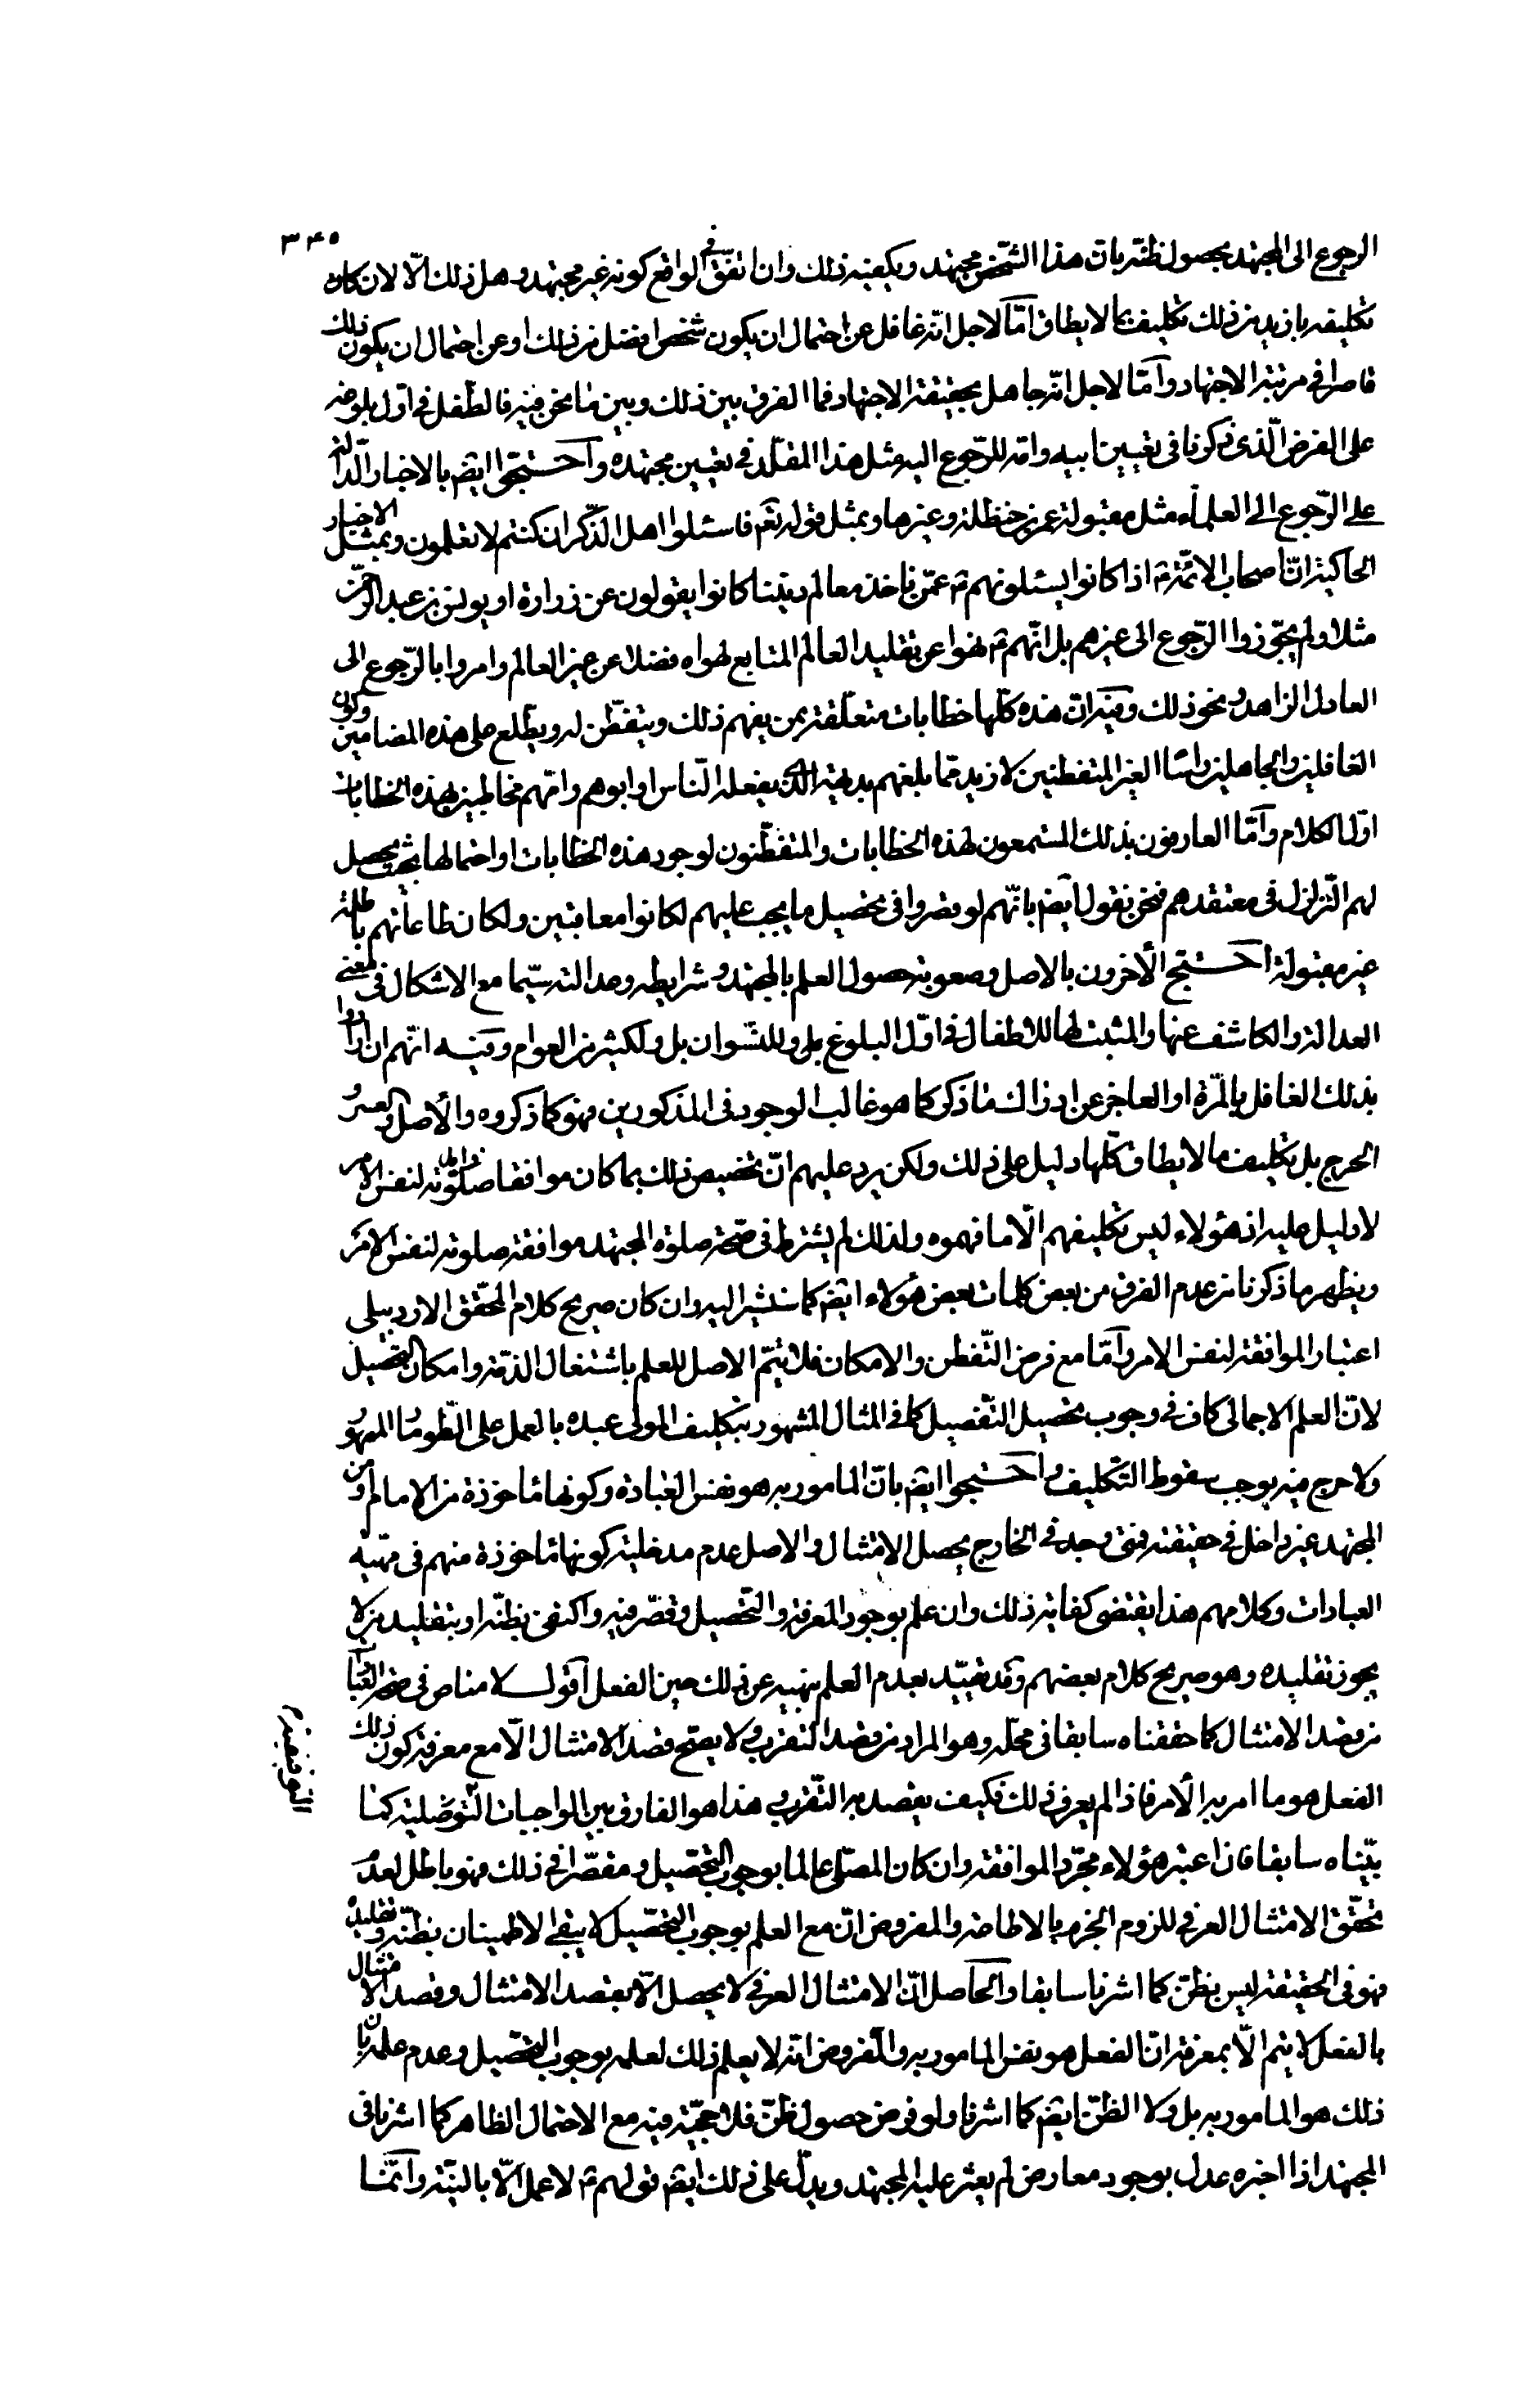 ٣٤٥
الرجوع الى المجتهد بحصول ظنّه بان هذا الشخص مجتهد ويكفيه ذلك وان اتفق فى الواقع كونه غير مجتهد وهل ذلك الّا لان كان
تكليفه بازيد من ذلك تكليف بما لا يطاق امّا لاجل انّه غافل عن احتمال ان يكون شخص افضل من ذلك او عن احتمال ان يكون ذلك
قاصرا فى مرتبة الاجتهاد وامّا لاجل انّه جاهل بحقيقة الاجتهاد فما الفرق بين ذلك وبين ما نحن فيه فالطفل فى اول بلوغه
على الفرض الّذى ذكرنا فى تعيين ابيه وامّه للرّجوع اليه مثل هذا المقلّد فى تعيين مجتهده واحتجّوا ايضم بالاخبار الدّالة
على الرّجوع الى العلماء مثل مقبولة عمر بن حنظلة وغيرها وبمثل قوله تعم فاسئلوا اهل الذّكر ان كنتم لا تعلمون وبمثل الاخبار
الحاكية انّ اصحاب الائمّة ع اذا كانوا يسئلونهم ع عمّن ناخذ معالم ديننا كانوا يقولون عن زرارة او يونس بن عبد الرحمن
مثلا ولم يجوّزوا الرّجوع الى غيرهم بل انّهم ع نهوا عن تقليد العالم المتابع لهواه فضلا عن غير العالم وامروا بالرّجوع الى
العادل الزاهد ونحو ذلك وفيه انّ هذه كلّها خطابات متعلّقة بمن يفهم ذلك ويتفطّن له ويطّلع على هذه المضامين وكون
الغافلين والجاهلين راسا الغير المتفطنين لازيد ممّا بلغهم بديهية الّذى يفعله النّاس او ابوهم وامّهم مخاطبين بهذه الخطابات
اول الكلام وامّا العارفون بذلك المستمعون لهذه الخطابات والمتفطّنون لوجود هذه الخطابات او احتمالها بحيث يحصل
لهم التّزلزل فى معتقدهم فنحن نقول ايضم بانّهم لو قصروا فى تحصيل ما يجب عليهم لكانوا معاقبين ولكان طاعاتهم باطلة
غير مقبولة احتج الآخرون بالاصل وصعوبة حصول العلم بالمجتهد وشرايطه وعدالته سيّما مع الاشكال فى معنى
العدالة والكاشف عنها والمثبت لها للاطفال فى اوّل البلوغ بل وللنّسوان بل ولكثير من العوام وفيه انّهم ان ارادوا
بذلك الغافل بالمرّة او العاجز عن ادراك ما ذكر كما هو غالب الوجود فى المذكورين فهو كما ذكروه والاصل والعسر و
الحرج بل تكليف ما لا يطاق كلّها دليل على ذلك ولكن يرد عليهم انّ تخصيص ذلك بما كان موافقا صلوته لنفس الامر
لا دليل عليه اذ هؤلاء ليس تكليفهم الّا ما فهموه ولذلك لم يشترط فى صحّة صلوة المجتهد موافقة صلوته لنفس الامر
ويظهر ما ذكرنا من عدم الفرق من بعض كلمات بعض هؤلاء ايضم كما سنشير اليه وان كان صريح كلام المحقّق الاردبيلى
اعتبار الموافقة لنفس الامر وامّا مع فرض التّفطن والامكان فلا يتمّ الاصل للعلم باشتغال الذمّة وامكان التحصيل
لانّ العلم الاجمالى كاف فى وجوب تحصيل التّفصيل كما فى المثال المشهور بتكليف المولى عبده بالعمل على الطومار المهور
ولا حرج فيه يوجب سقوط التّكليف واحتجوا ايضم بانّ المامور به هو نفس العبادة وكونها ماخوذة من الامام او من
المجتهد غير داخل فى حقيقته فمتى وجد فى الخارج يحصل الامتثال والاصل عدم مدخلية كونها ماخوذة منهم فى مهيّة
العبادات وكلامهم هذا يقتضى كفاية ذلك وان علم بوجود المعرفة والتّحصيل وقصّر فيه واكتفى بظنّه او بتقليد من لا
يجوز تقليده وهو صريح كلام بعضهم وقد يقيّد بعدم العلم بنهيه عن ذلك حين الفعل اقول لا مناص فى صحة العبادات
من قصد الامتثال كما حققناه سابقا فى محلّه وهو المراد من قصد التّقرب ولا يصحّ قصد الامتثال الّا مع معرفة كون ذلك
الفعل هو ما امر به الآمر فاذا لم يعرف ذلك فكيف يقصد به التّقرب هذا هو الفارق بين الواجبات التّوصّلية كما
التوقيفية
بيّناه سابقا فان اعتبر هؤلاء مجرّد الموافقة وان كان المصلّى عالما بوجوب التّحصيل ومقصّرا فى ذلك فهو باطل لعدم
تحقّق الامتثال العرفى للزوم الجزم بالاطاعة والمفروض انّ مع العلم بوجوب التّحصيل لا يبقى الاطمينان بظنّه وتقليده
فهو فى الحقيقة ليس بظنّ كما اشرنا سابقا والحاصل انّ الامتثال العرفى لا يحصل الّا بقصد الامتثال وقصد الامتثال
بالفعل لا يتم الّا بمعرفة انّ الفعل هو نفس المامور به والمفروض انّه لا يعلم ذلك لعلمه بوجوب التّحصيل وعدم علمه بان
ذلك هو المامور به بل ولا الظنّ ايضم كما اشرنا ولو فرض حصول ظنّ فلا حجيّة فيه مع الاحتمال الظاهر كما اشرنا فى
المجتهد اذا اخبره عدل بوجود معارض لم يعثر عليه المجتهد ويدلّ على ذلك ايضم قولهم ع لا عمل الّا بالنيّة وانّما